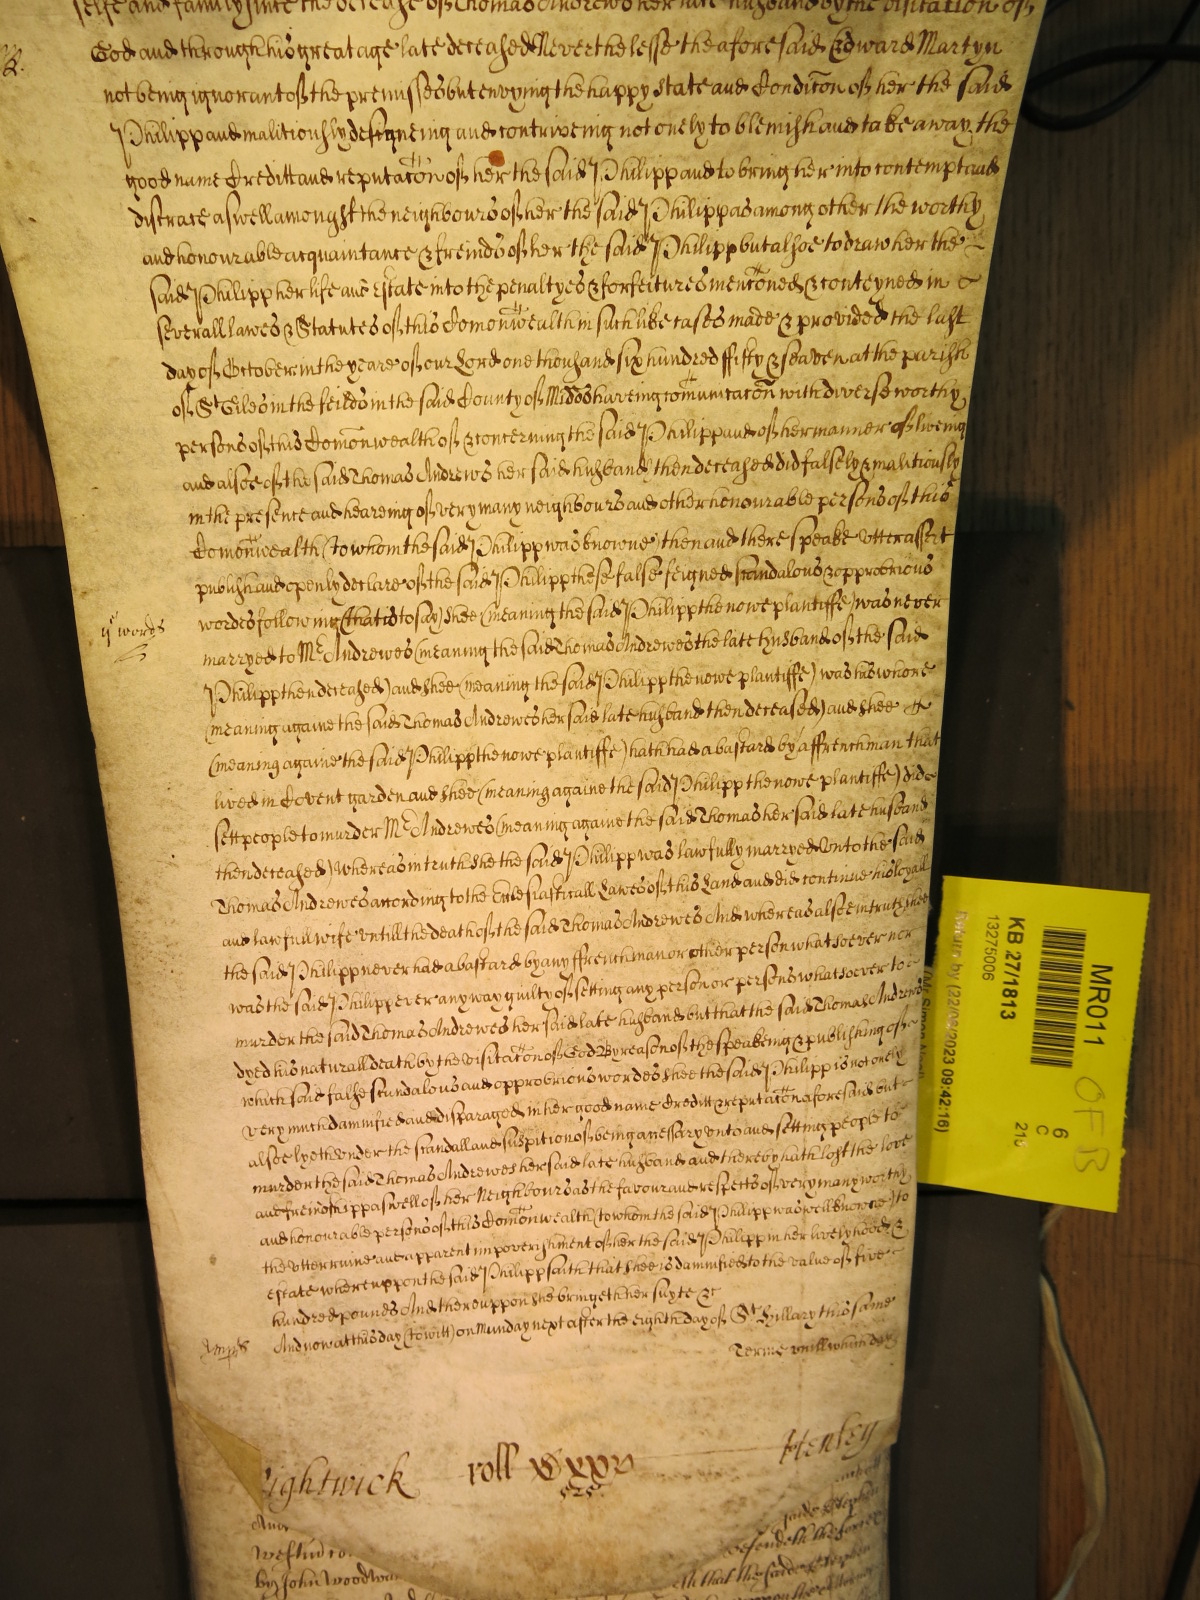 selfe and family since the decease of Thomas Andrewes her late husband by the visitation of
God and through his great age late deceased Neverthelesse the aforesaid Edward Martyn
not being ignorant of the premisses but envying the happy state and Condicon of her the said
Philipp and malitiously designeing and contriveing not onely to blemish and take away the
good name Creditt and reputacon of her the said Philipp and to bring her into contempt and
disgrace aswell amongst the neighbours of her the said Philipp as among other the worthy
and honourable acquaintance & freinds of her the said Philipp but alsoe to draw her the
said Philipp her life and Estate into the penaltyes & forfeitures menconed & conteyned in
severall lawes & Statutes of this Comonwealth in such like cases made & provided the last
day of October in the yeare of our Lord one thousand six hundred fifty & seaven at the parish
of St Giles in the feilds in the said County of Midds haveing comunicacon with diverse worthy
persons of this Comonwealth of & concerning the said Philipp and of her manner of liveing
and alsoe of the said Thomas Andrewes her said husband then deceased did falsely & malitiously
in the presence and heareing of very many neighbours and other honourable persons of this
Comonwealth (to whom the said Philipp was knowne) then and there speake utter assert
publish and openly declare of the said Philipp these false feigned scandalous & opprobrious
words following (that is to say) shee (meaning the said Philipp the nowe plantiffe) was never
ys words
marryed to Mr Andrewes (meaning the said Thomas Andrewes the late husband of the said
Philipp then deceased) and shee (meaning the said Philipp the nowe plantiffe) was his whore
(meaning againe the said Thomas Andrewes her said late husband then deceased) and shee
(meaning againe the said Philipp the nowe plantiffe) hath had a bastard by a ffrenchman that
lived in Covent garden and shee (meaning againe the said Philipp the nowe plantiffe) did
sett people to murder Mr Andrewes (meaning againe the said Thomas her said late husband
then deceased) Whereas in truth she the said Philipp was lawfully marryed unto the said
Thomas Andrewes according to the Eclesiasticall Lawes of this Land and did continue his loyall
and lawfull wife untill the death of the said Thomas Andrewes And whereas alsoe in truth shee
the said Philipp never had a bastard by any ffrenchman or other person whatsoever nor
was the said Philipp ever any way guilty of setting any person or persons whatsoever to
murder the said Thomas Andrewes her said late husband but that the said Thomas Andrewes
dyed his naturall death by the visitacon of God By reason of the speakeing & publishing of
which said false scandalous and opprobrious wordes shee the said Philipp is not onely
very much damnified and disparaged in her good name Creditt & reputacon aforesaid but
alsoe lyeth under the scandall and suspition of being accessary unto and setting people to
murder the said Thomas Andrewes her said late husband and thereby hath lost the love
and freindshipp aswell of her Neighbours as the favour and respects of very many worthy
and honourable persons of this Comonwealth (to whom the said Philipp was well knowne) to
the utter ruine and apparent impoverishment of her the said Philipp in her livelyhood &
estate whereuppon the said Philipp saith that shee is damnified to the value of five
hundred pounds And thereuppon she bringeth her suyte &c
And now at this day (to witt) on Munday next after the eighth day of St Hillary this same
Terme untill which day
ightwick roll xxxv Henley
by John Woodwar
defendeth the force
MR011
KB 27/1813
13275006
6
C
215
OFB
(22/08/2023 09:42:16)